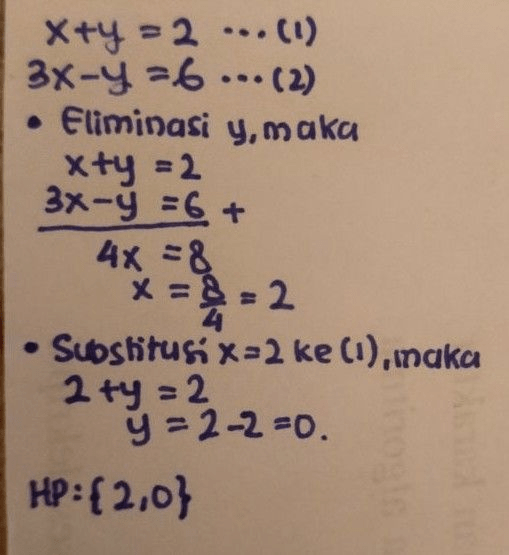 x+y = 2 ... (1)
3x-y = 6 ... (2)
• Eliminasi y, maka
x+y = 2
3x-y = 6 +
4x = 8
x = 8/4 = 2
• Substitusi x=2 ke (1), maka
2+y = 2
y = 2-2 = 0.
HP: {2,0}